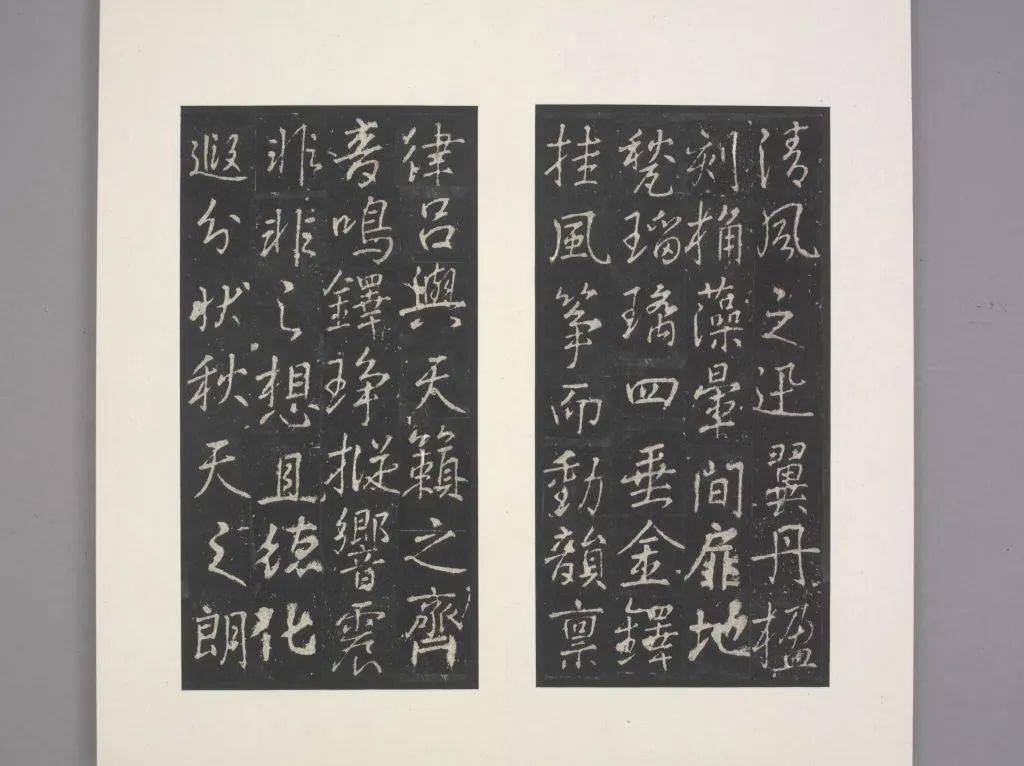 清風之迅翼丹楹
刻桷藻暈間扉地
甃瑠璃四垂金鐸
挂風箏而動韻禀
律呂與天籟之齊
音鳴鐸琤摐響震
非非之想且德化
遐分狀秋天之朗